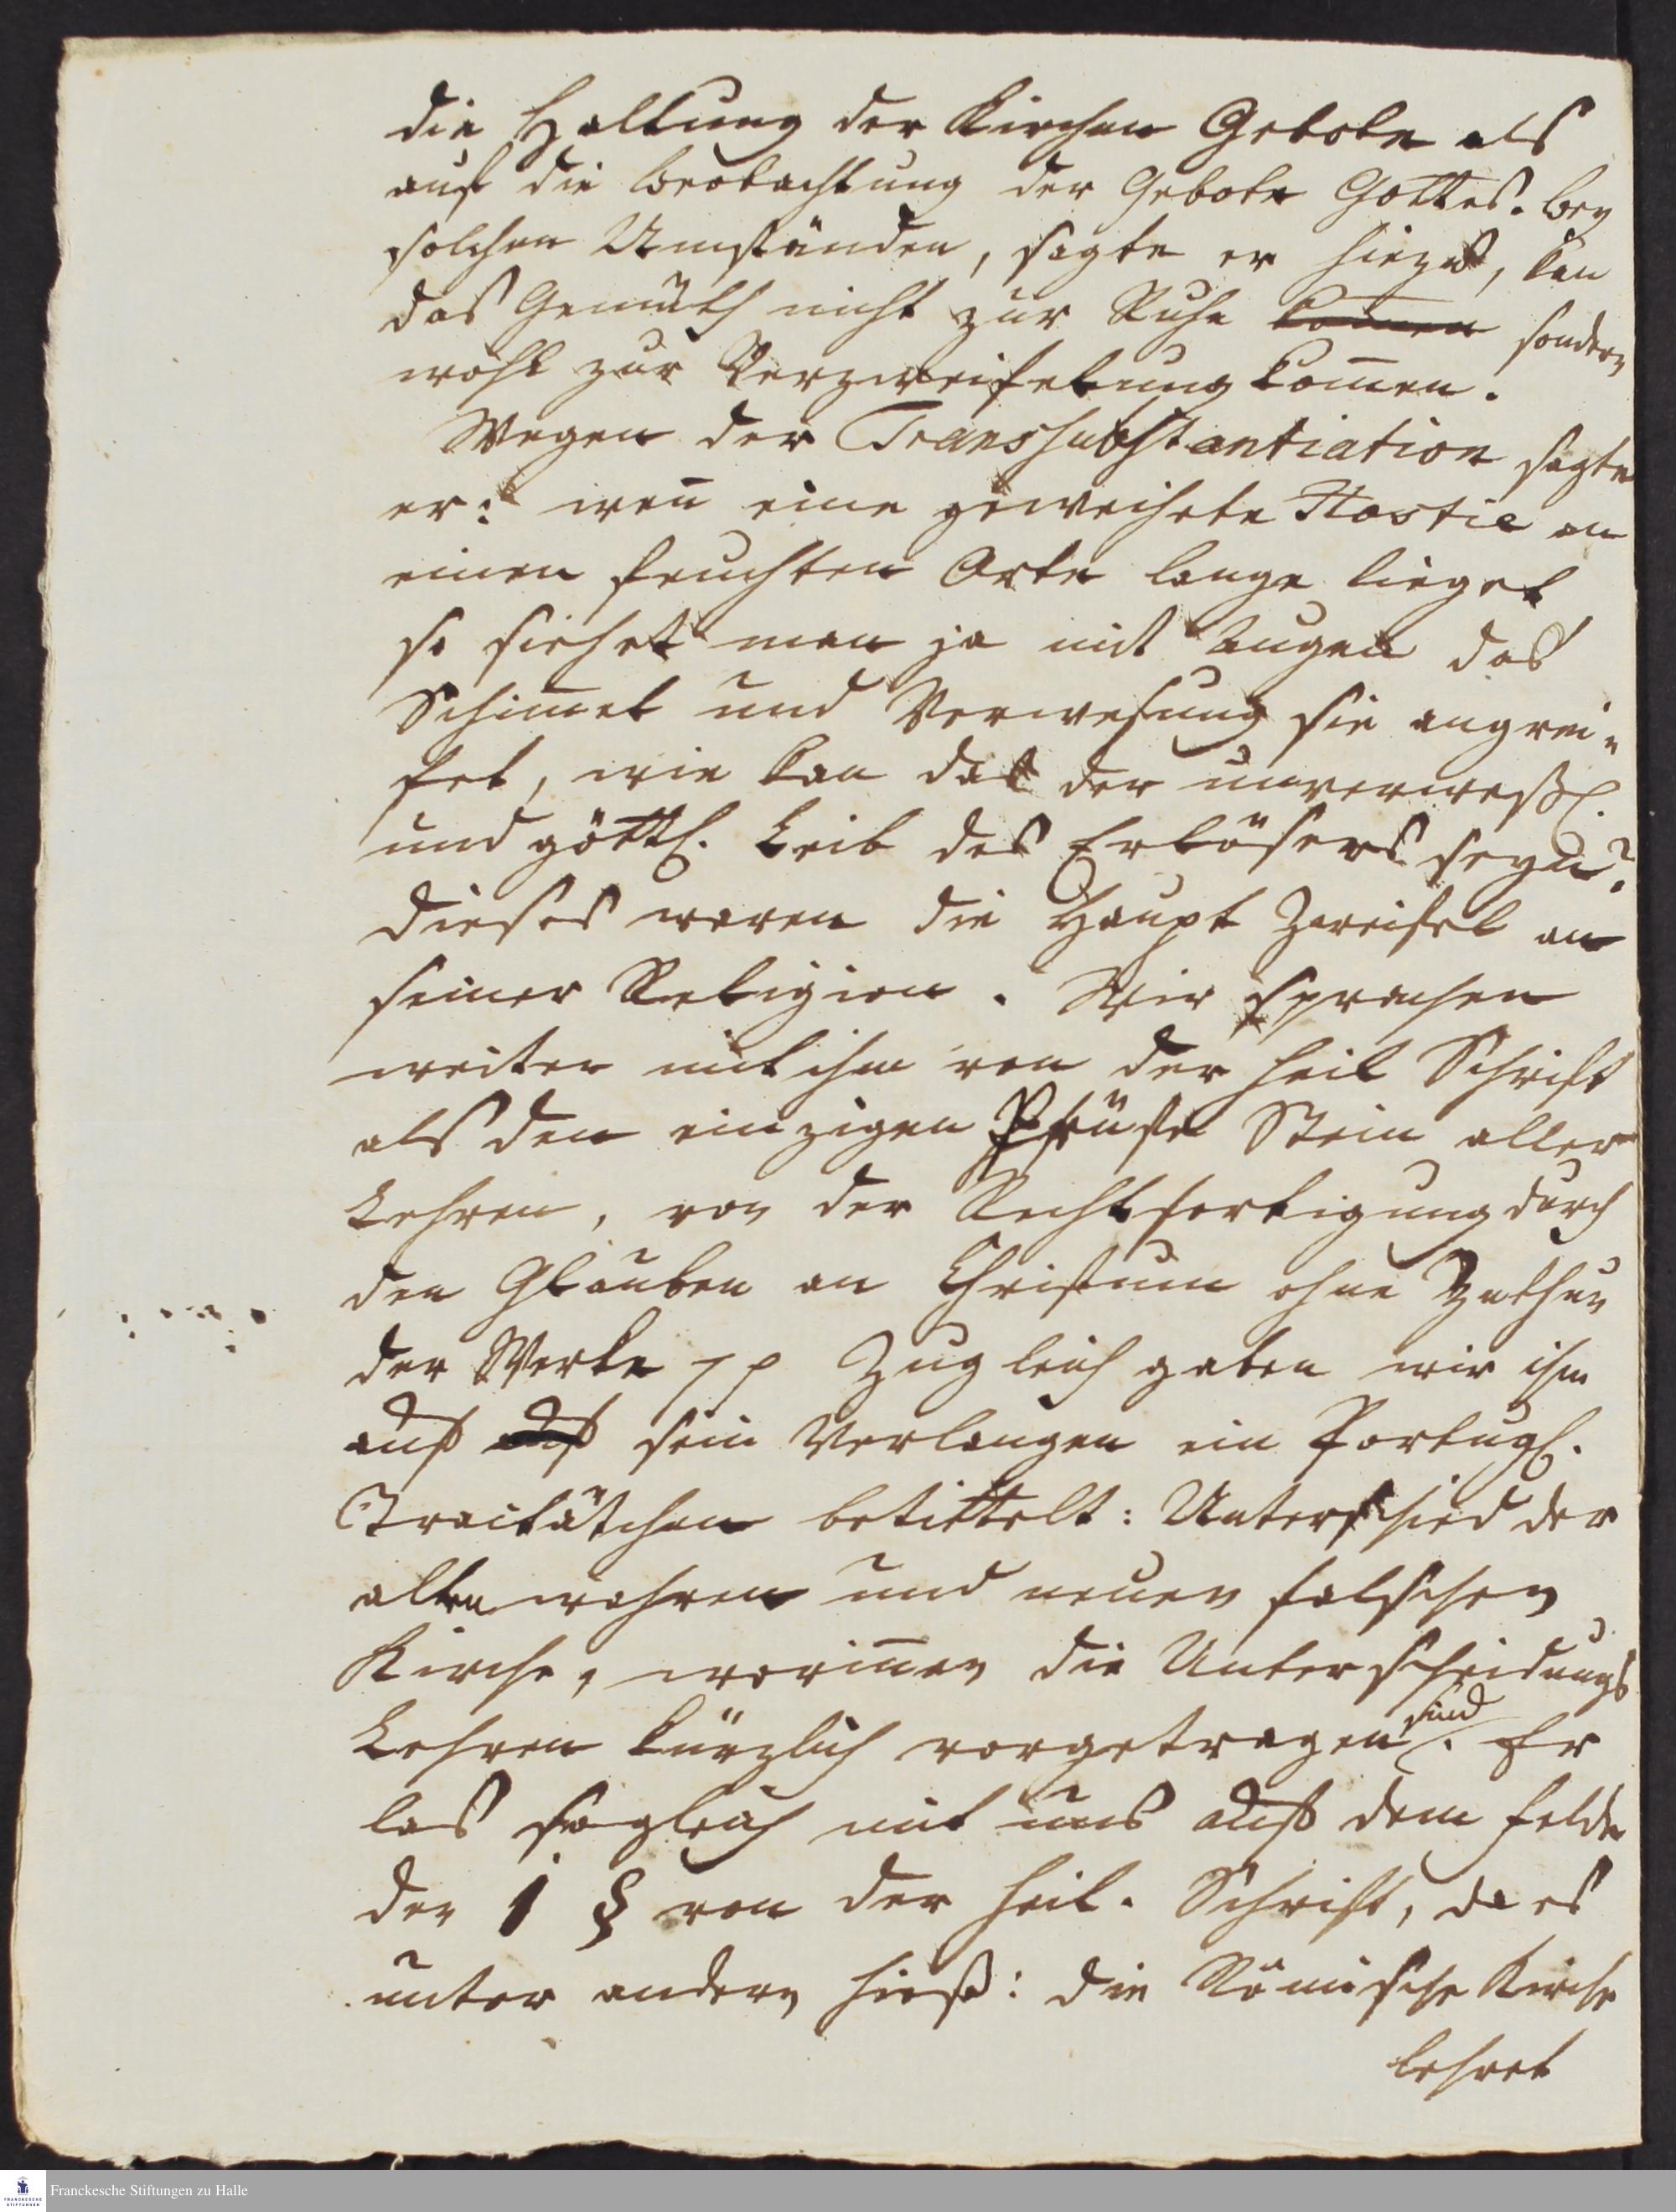 die Haltung der Kirchen Gebote als
auf die Beobachtung der Gebote Gottes. Bey
solchen Umständen, sagte er hiezu, kan
das Gemüth nicht zur Ruhe komen sondern
wohl zur Verzweifelung kom̄en.
Wegen der Transsubstantiation sagte
er: wen̄ eine geweihete Hostie an
einen feuchten Orte lange lieget
so siehet man ja mit Augen das
Schim̄el und Verwesung sie angrei-
fet, wie kan das der unverweßl.
und göttl. Leib des Erlösers seyn?
dieses waren die Haupt Zweifel an
seiner Religion. Wir sprachen
weiter mit ihm von der heil Schrift
als den einzigen Prüfe Stein aller
Lehren, von der Rechtfertigung durch
den Glauben an Christum ohne Zuthun
der Werke pp Zugleich gaben wir ihm
auf auf sein Verlangen ein Portugl.
Tractätchen betittelt: Unterschied der
alten wahren und neuen falschen
Kirche, worin̄en die Unterscheidungs
Lehren kürzlich vorgetragen sind. Er
las sogleich mit uns auf dem Felde
den 1 § von der heil. Schrift, da es
unter andern hieß: die Römische Kirche
lehret
Franckesche Stiftungen zu Halle